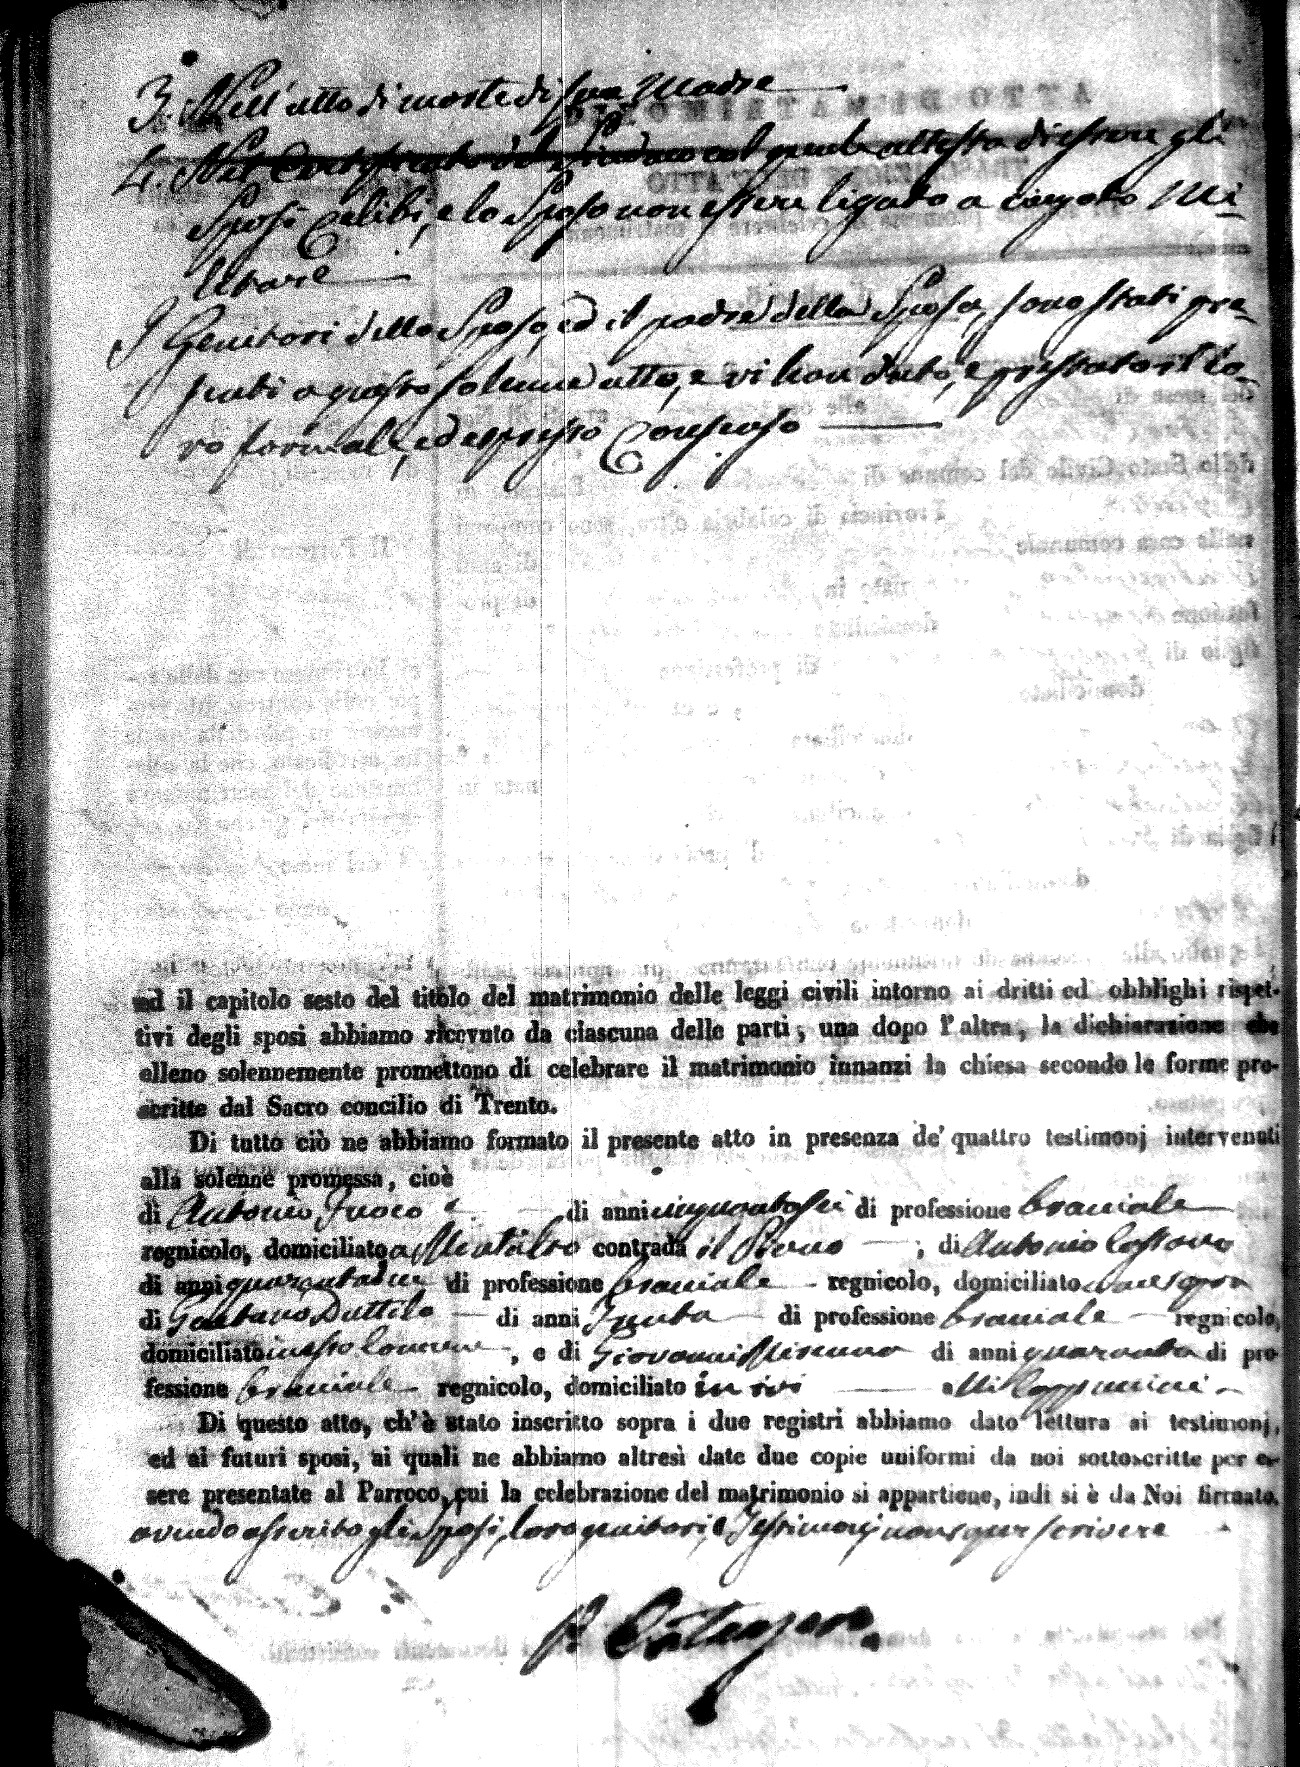 3. Nell'atto di morte di sua Madre
4. Nel Certificato del Sindaco col quale attesta di essere gli
Sposi Celibi, e lo Sposo non essere ligato a congedo Mi-
litare
I Genitori dello Sposo, ed il padre della Sposa, sono stati pre-
senti a questo solenne atto, e vi han dato, e prestato il lo-
ro formale, ed espresso Consenso
ed il capitolo sesto del titolo del matrimonio delle leggi civili intorno ai dritti ed obblighi rispet-
tivi degli sposi abbiamo ricevuto da ciascuna delle parti, una dopo l'altra, la dichiarazione che
elleno solennemente promettono di celebrare il matrimonio innanzi la chiesa secondo le forme pre-
scritte dal Sacro concilio di Trento.
Di tutto ciò ne abbiamo formato il presente atto in presenza de' quattro testimonj intervenuti
alla solenne promessa, cioè
di Antonio Fuoco di anni cinquantasei di professione braciale
regnicolo, domiciliato a Montalto contrada il ; di Antonio
di anni quarantadue di professione braciale regnicolo, domiciliato
di Gaetano Duttilo di anni Trenta di professione braciale regnicolo,
domiciliato in esso Comune, e di Giovanni di anni quaranta di pro-
fessione braciale regnicolo, domiciliato in ivi
Di questo atto, ch'è stato inscritto sopra i due registri abbiamo dato lettura ai testimonj,
ed ai futuri sposi, ai quali ne abbiamo altresì date due copie uniformi da noi sottoscritte per es-
sere presentate al Parroco, cui la celebrazione del matrimonio si appartiene, indi si è da Noi firmato.
avendo asserito gli Sposi, loro genitori, e Testimonj non saper scrivere